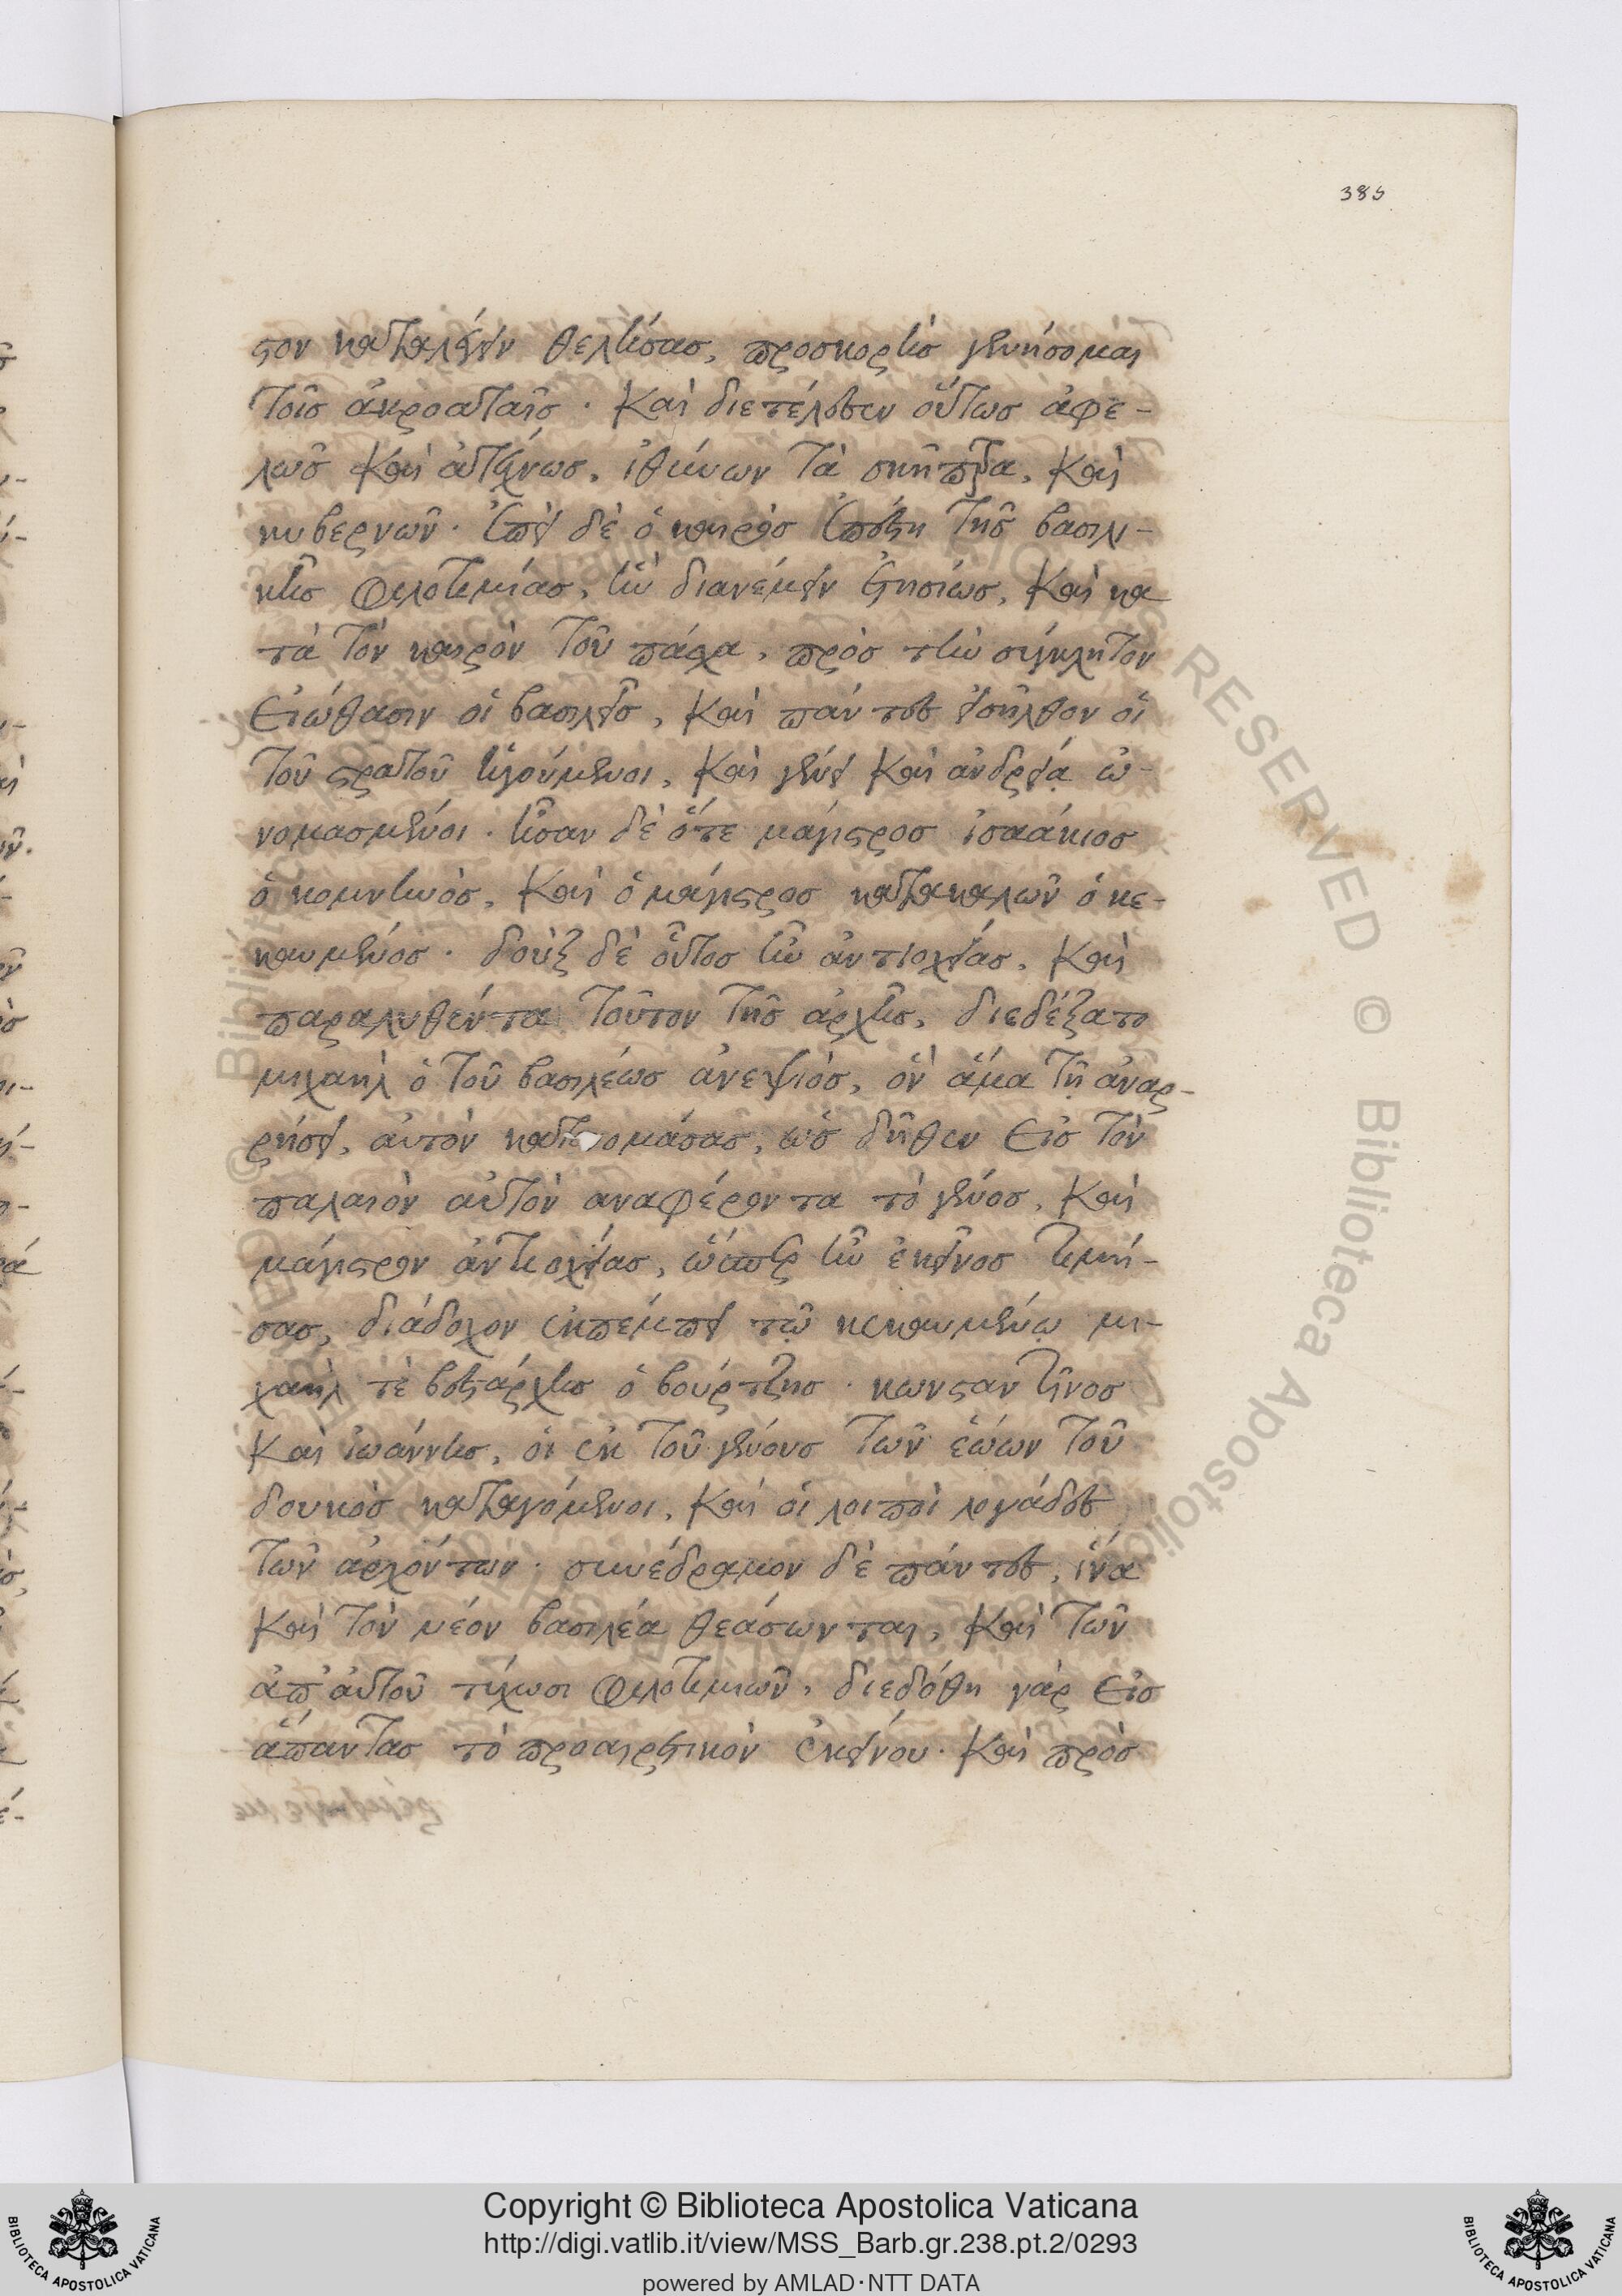 385
στον καταλέγειν θελήσας, προσκορὴς γενήσομαι
τοῖς ἀκροαταῖς · καὶ διετέλεσεν οὕτως ἀφε-
λῶς καὶ ἀτέχνως, ἰθύνων τὰ σκῆπτρα, καὶ
κυβερνῶν · ἐπεὶ δὲ ὁ καιρὸς ἐπέστη τῆς βασιλι-
κῆς φιλοτιμίας, ἣν διανέμειν ἐτησίως, καὶ κα
τὰ τὸν καιρὸν τοῦ πάσχα, πρὸς τὴν σύγκλητον
εἰώθασιν οἱ βασιλεῖς, καὶ πάντες εἰσῆλθον οἱ
τοῦ στρατοῦ ἡγούμενοι, καὶ γένει καὶ ἀνδρείᾳ ὠ-
νομασμένοι · ἦσαν δὲ ὅτε μάγιστρος ἰσαάκιος
ὁ κομνηνὸς, καὶ ὁ μάγιστρος κατακαλῶν ὁ κε-
καυμένος · δοὺξ δὲ οὗτος ἦν ἀντιοχείας, καὶ
παραλυθέντα τοῦτον τῆς ἀρχῆς, διεδέξατο
μιχαὴλ ὁ τοῦ βασιλέως ἀνεψιὸς, ὃν ἅμα τῇ ἀναρ-
ρήσει, αὐτὸν κατονομάσας, ὡς δῆθεν εἰς τὸν
παλαιὸν αὐτὸν αναφέροντα τὸ γένος, καὶ
μάγιστρον ἀντιοχείας, ὥσπερ ἦν ἐκεῖνος τιμή-
σας, διάδοχον ἐκπέμπει τῷ κεκαυμένῳ μι-
χαὴλ τὲ βεστάρχης ὁ βούρτζης · κωνσταντῖνος
καὶ ἰωάννης, οἱ ἐκ τοῦ γένους τῶν ἑώων τοῦ
δουκὸς καταγόμενοι, καὶ οἱ λοιποὶ λογάδες
τῶν ἀρχόντων · συνέδραμον δὲ πάντες, ἵνα
καὶ τὸν νέον βασιλέα θεάσωνται, καὶ τῶν
ἀπ' αὐτοῦ τύχωσι φιλοτιμιῶν, διεδόθη γὰρ εἰς
ἅπαντας τὸ προαιρετικὸν ἐκείνου · καὶ πρὸς
© Biblioteca Apostolica Vaticana
RESERVED © Biblioteca Apostolica
Copyright © Biblioteca Apostolica Vaticana
http://digi.vatlib.it/view/MSS_Barb.gr.238.pt.2/0293
powered by AMLAD·NTT DATA
BIBLIOTECA APOSTOLICA VATICANA
BIBLIOTECA APOSTOLICA VATICANA